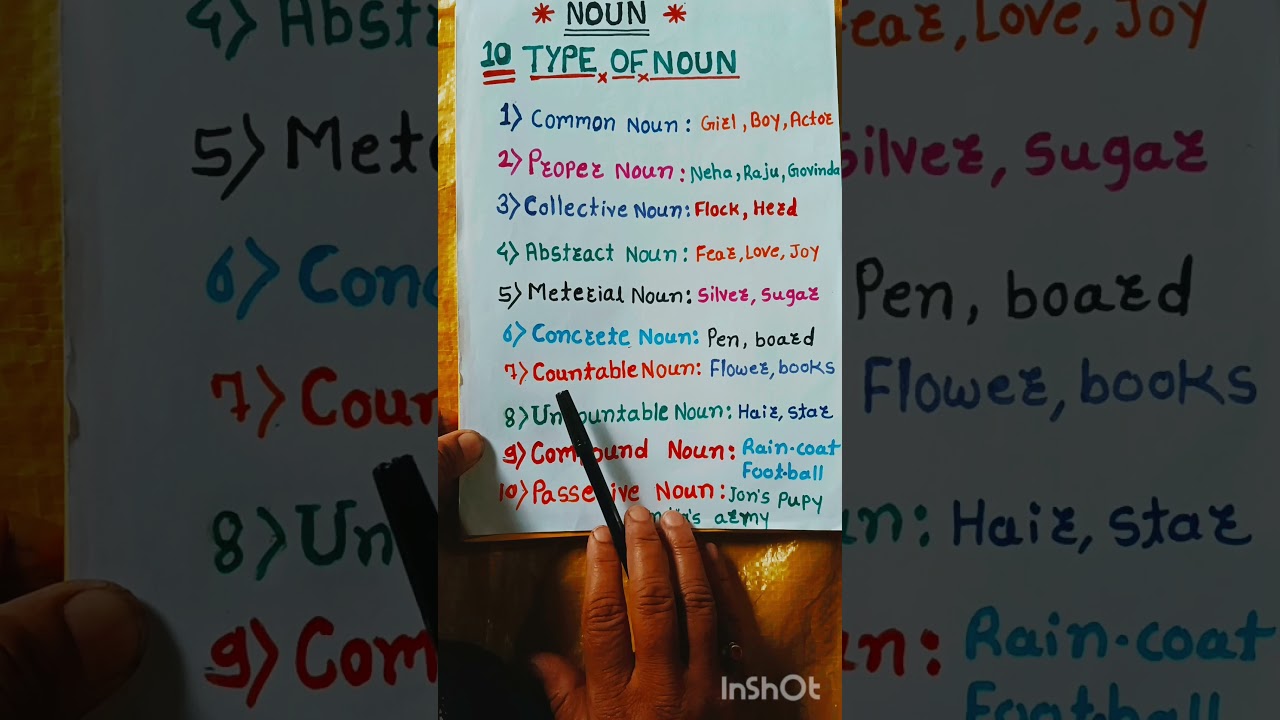 * NOUN *
10 TYPE OF NOUN
1) Common Noun: Girl, Boy, Actor
2) Proper Noun: Neha, Raju, Govinda
3) Collective Noun: Flock, Herd
4) Abstract Noun: Fear, Love, Joy
5) Meterial Noun: Silver, Sugar
6) Concrete Noun: Pen, board
7) Countable Noun: Flower, books
8) Uncountable Noun: Hair, star
9) Compound Noun: Rain-coat
Foot-ball
10) Noun: Jon's pupy
army
InShOt